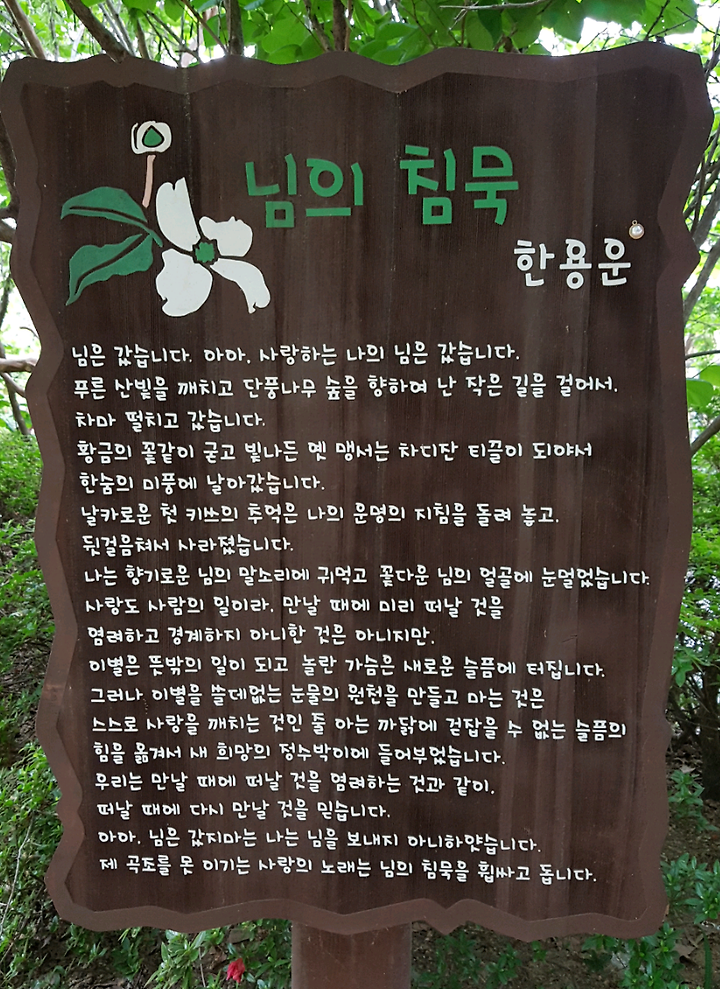 님의 침묵
한용운
님은 갔습니다. 아아, 사랑하는 나의 님은 갔습니다.
푸른 산빛을 깨치고 단풍나무 숲을 향하여 난 작은 길을 걸어서,
차마 떨치고 갔습니다.
황금의 꽃같이 굳고 빛나든 옛 맹서는 차디찬 티끌이 되야서
한숨의 미풍에 날아갔습니다.
날카로운 첫 키쓰의 추억은 나의 운명의 지침을 돌려 놓고,
뒷걸음쳐서 사라졌습니다.
나는 향기로운 님의 말소리에 귀먹고 꽃다운 님의 얼골에 눈멀었습니다.
사랑도 사람의 일이라, 만날 때에 미리 떠날 것을
염려하고 경계하지 아니한 것은 아니지만,
이별은 뜻밖의 일이 되고 놀란 가슴은 새로운 슬픔에 터집니다.
그러나 이별을 쓸데없는 눈물의 원천을 만들고 마는 것은
스스로 사랑을 깨치는 것인 줄 아는 까닭에 걷잡을 수 없는 슬픔의
힘을 옮겨서 새 희망의 정수박이에 들어부었습니다.
우리는 만날 때에 떠날 것을 염려하는 것과 같이,
떠날 때에 다시 만날 것을 믿습니다.
아아, 님은 갔지마는 나는 님을 보내지 아니하얏습니다.
제 곡조를 못 이기는 사랑의 노래는 님의 침묵을 휩싸고 돕니다.